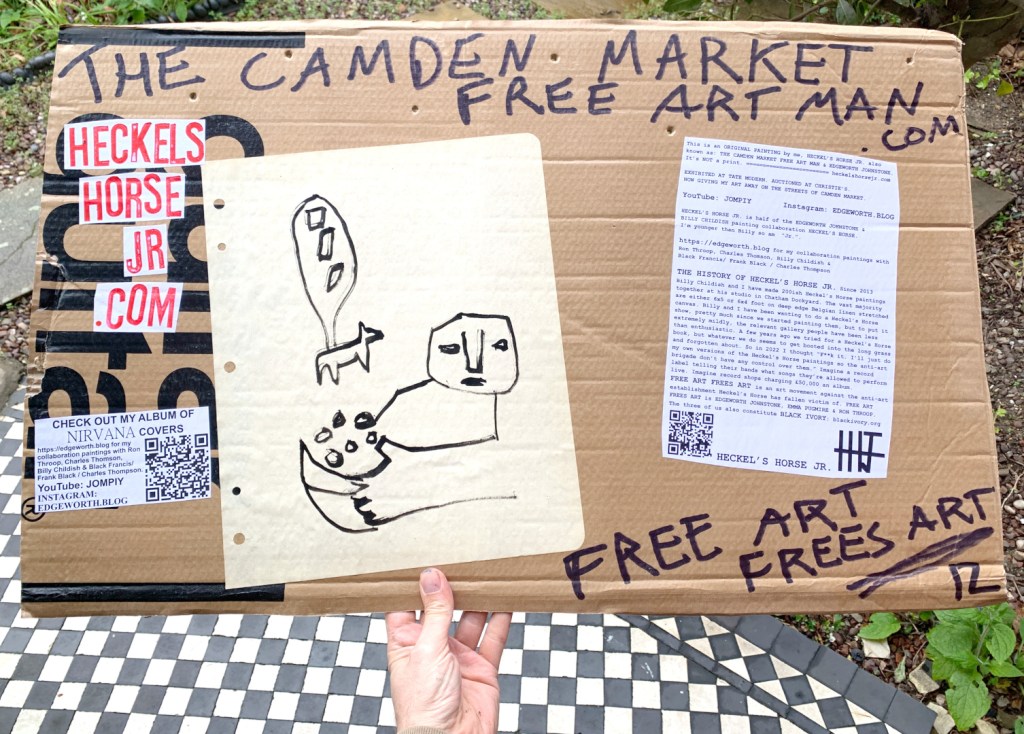 THE CAMDEN MARKET
FREE ART MAN
.COM
HECKELS
HORSE
JR
.COM
CHECK OUT MY ALBUM OF
NIRVANA COVERS
https://edgeworth.blog for my
collaboration paintings with Ron
Throop, Charles Thomson,
Billy Childish & Black Francis/
Frank Black / Charles Thompson.
YouTube: JOMPIY
INSTAGRAM:
EDGEWORTH.BLOG
This is an ORIGINAL PAINTING by me, HECKEL'S HORSE JR. also
known as: THE CAMDEN MARKET FREE ART MAN & EDGEWORTH JOHNSTONE.
It's NOT a print. heckelshorsejr.com
EXHIBITED AT TATE MODERN. AUCTIONED AT CHRISTIE'S.
NOW GIVING MY ART AWAY ON THE STREETS OF CAMDEN MARKET.
YouTube: JOMPIY Instagram: EDGEWORTH.BLOG
HECKEL'S HORSE JR. is half of the EDGEWORTH JOHNSTONE &
BILLY CHILDISH painting collaboration HECKEL'S HORSE.
I'm younger than Billy so am "Jr."
https://edgeworth.blog for my collaboration paintings with
Ron Throop, Charles Thomson, Billy Childish &
Black Francis/ Frank Black / Charles Thompson
THE HISTORY OF HECKEL'S HORSE JR. Since 2013
Billy Childish and I have made 200ish Heckel's Horse paintings
together at his studio in Chatham Dockyard. The vast majority
are either 6x8 or 6x6 foot on deep edge Belgian linen stretched
canvas. Billy and I have been wanting to do a Heckel's Horse
show, pretty much since we started painting them, but to put it
extremely mildly, the relevant gallery people have been less
than enthusiastic. A few years ago we tried for a Heckel's Horse
book, but whatever we do seems to get booted into the long grass
and forgotten about. So in 2022 I thought "F**k it. I'll just do
my own versions of the Heckel's Horse paintings so the anti-art
brigade don't have any control over them." Imagine a record
label telling their bands what songs they're allowed to perform
live. Imagine record shops charging £50,000 an album.
FREE ART FREES ART is an art movement against the anti-art
establishment Heckel's Horse has fallen victim of. FREE ART
FREES ART is EDGEWORTH JOHNSTONE, EMMA PUGMIRE & RON THROOP.
The three of us also constitute BLACK IVORY. blackivory.org
HECKEL'S HORSE JR.
HJ
FREE ART
FREES ART
12